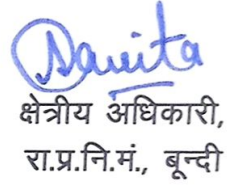 Savita
क्षेत्रीय अधिकारी,
रा.प्र.नि.मं., बून्दी